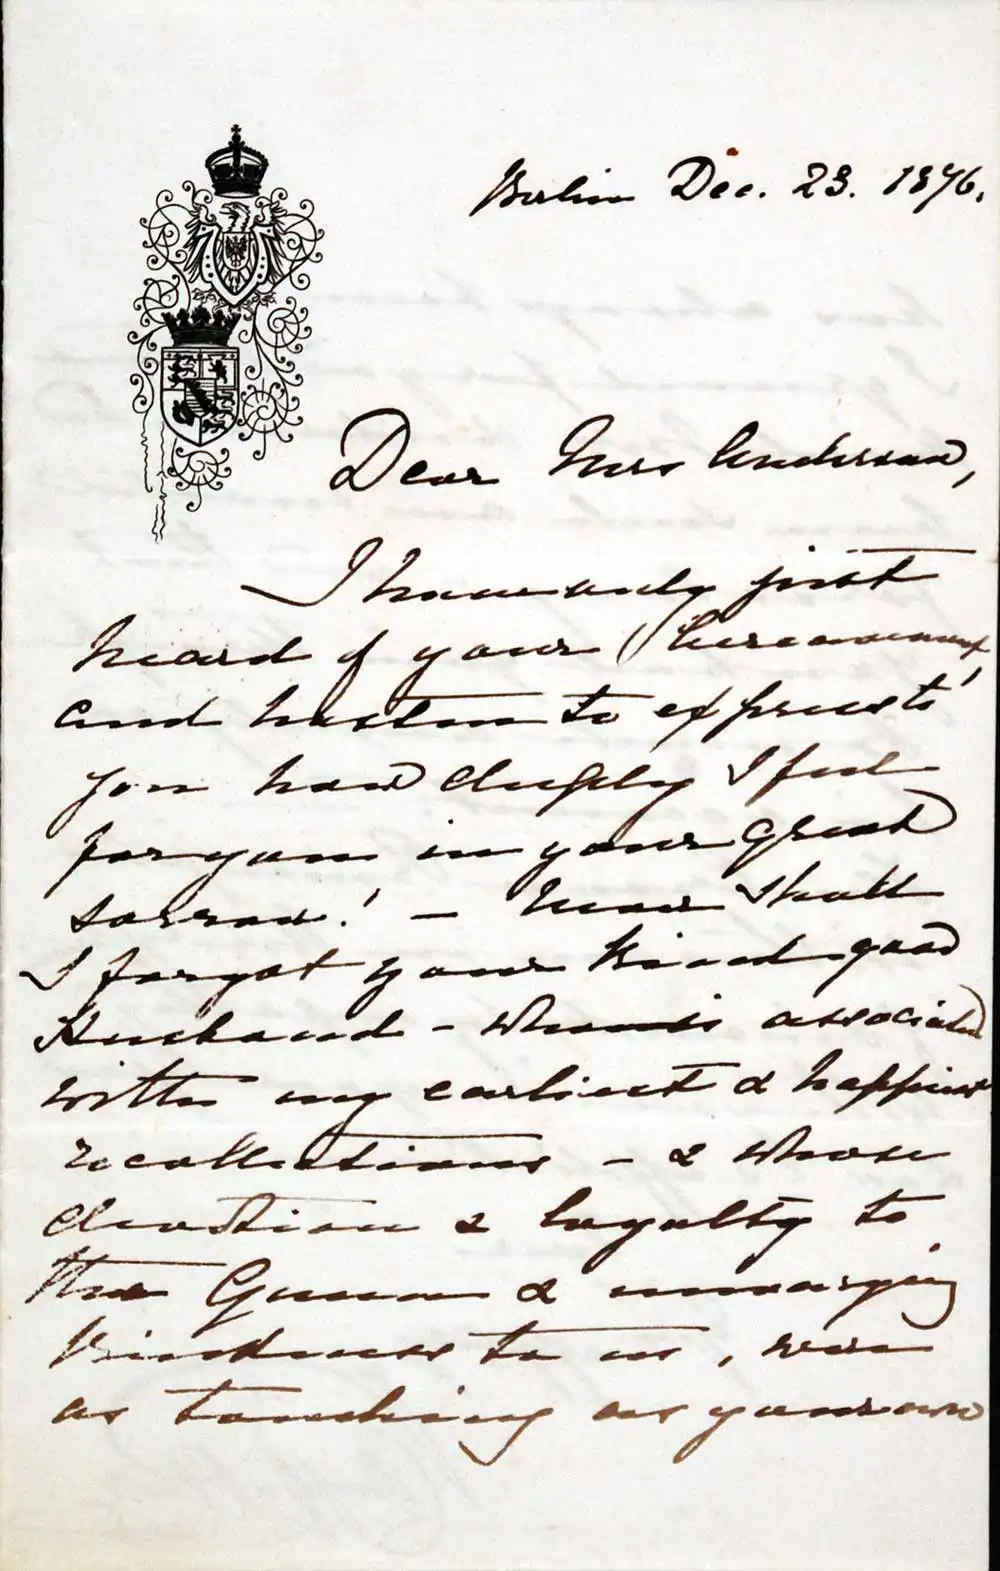 Berlin Dec. 23. 1876.
Dear Mrs Anderson,
I have only just
heard of your bereavement,
and hasten to express to
you how deeply I feel
for you in your great
sorrow! – Never shall
I forget your kind good
Husband – who is associated
with my earliest & happiest
recollections – & whose
devotion & loyalty to
the Queen & unvarying
kindness to us, were
as touching as your own